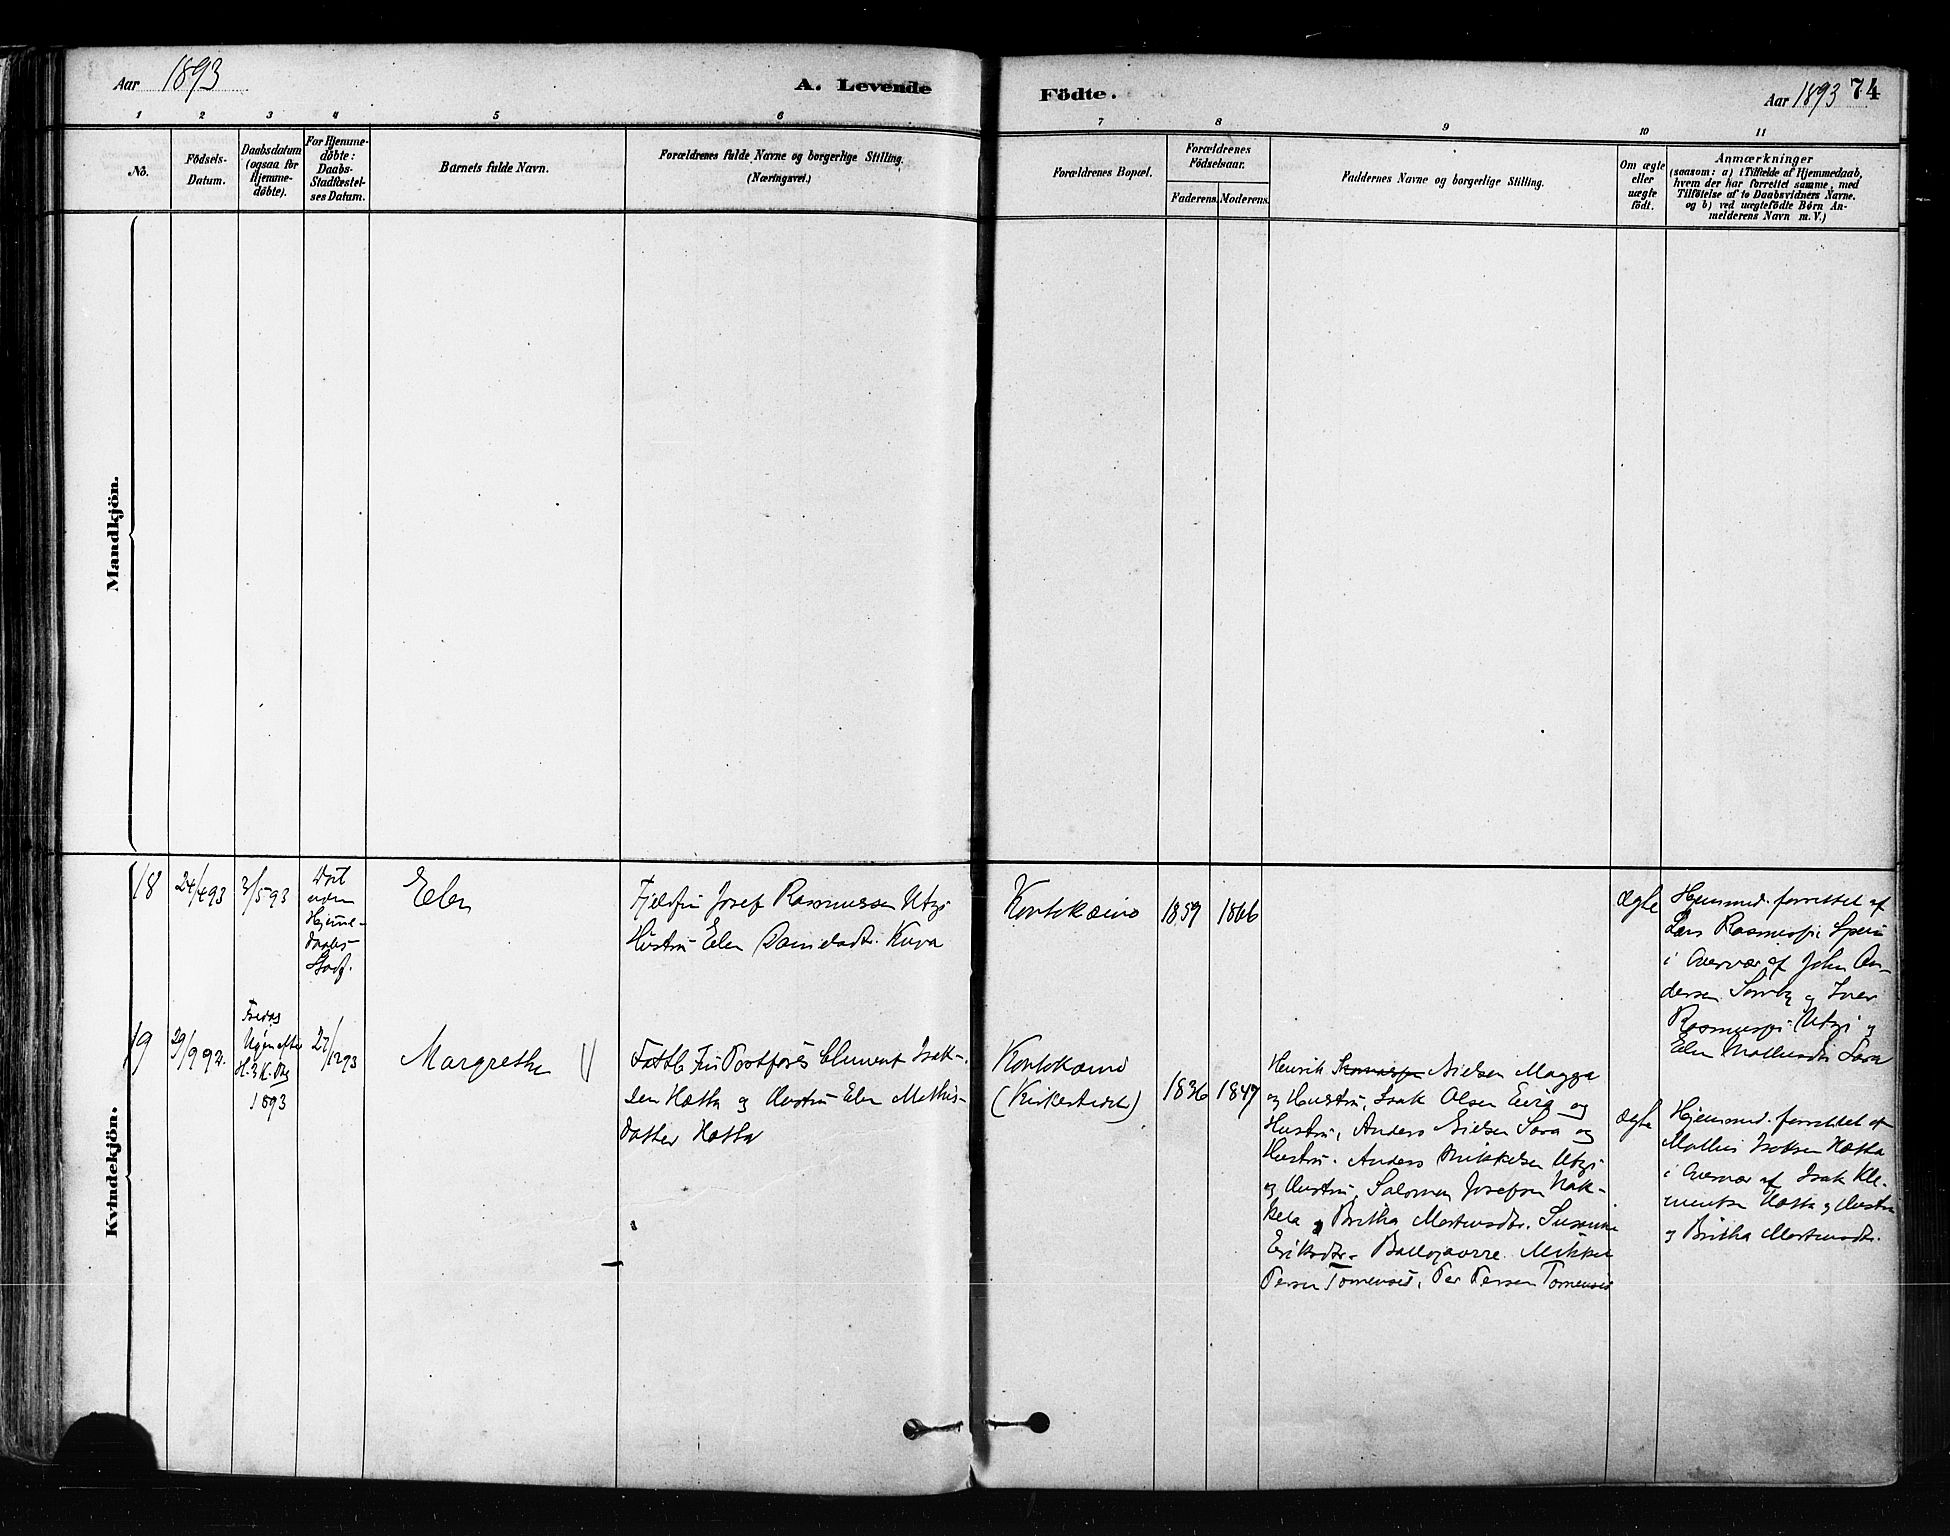 Aar 1893
A. Levende
Födte.
Aar 1893 74
1 2 3 4 5 6 7 8 9 10 11
No.
Födsels-
Datum.
Daabsdatum
(ogsaa for
Hjemme-
döbte).
For Hjemme-
döbte:
Daabs-
Stadfæstel-
ses Datum.
Barnets fulde Navn.
Forældrenes fulde Navne og borgerlige Stilling.
(Næringsvei.)
Forældrenes Bopæl.
Forældrenes
Födselsaar.
Faderens. Moderens.
Faddernes Navne og borgerlige Stilling.
Om ægte
eller
uægte
födt.
Anmærkninger
(saasom: a) i Tilfælde af Hjemmedaab,
hvem der har forrettet samme, med
Tilföielse af to Daabsvidners Navne.
og b) ved uægtefödte Börn An-
melderens Navn m. V.)
Mandkjön.
Kvindekjön.
18
24/4 93
3/5 93
Död
uden
Hjemme-
daabs-
Stadf.
Elen
Fjeldfin Josef Rasmussen Utzi
Hustru Elen Danielsdtr. Kuva
Kautokeino
1859
1866
ægte
Hjemmed. forrettet af
Lars Rasmussen
i Overvær af John An-
dersen Somby og Iver
Rasmussen Utzi og
Elen Mathisdtr Sara
19
29/9 92.
Ugen efter
1893
27/12 93
Margrethe
Fattb. Fin Postförer Clement Isak-
sen Hætta og Hustru Elen Mathis-
datter Hætta
Kautokeino
(Kirkestedet)
1836
1847
Henrik Nielsen Magga
og Hustru, Isak Olsen Eira og
Hustru, Anders Nielsen Sara og
Hustru. Anders Mikkelsen Utzi
og Hustru, Salomon Josefsen Näk-
kela og Britha Mortensdtr. Susanna
Eriksdtr. Mikkel
Persen Tornensis, Per Persen Tornensis
ægte
Hjemmed. forrettet af
Mathis Isaksen Hætta
i Overvær af Isak Kle-
mentsen Hætta og Hustru
og Britha Mortensdtr.